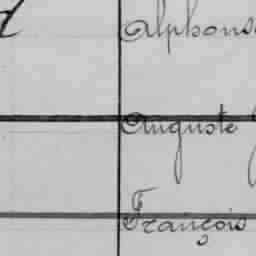 Alphons
Auguste
François